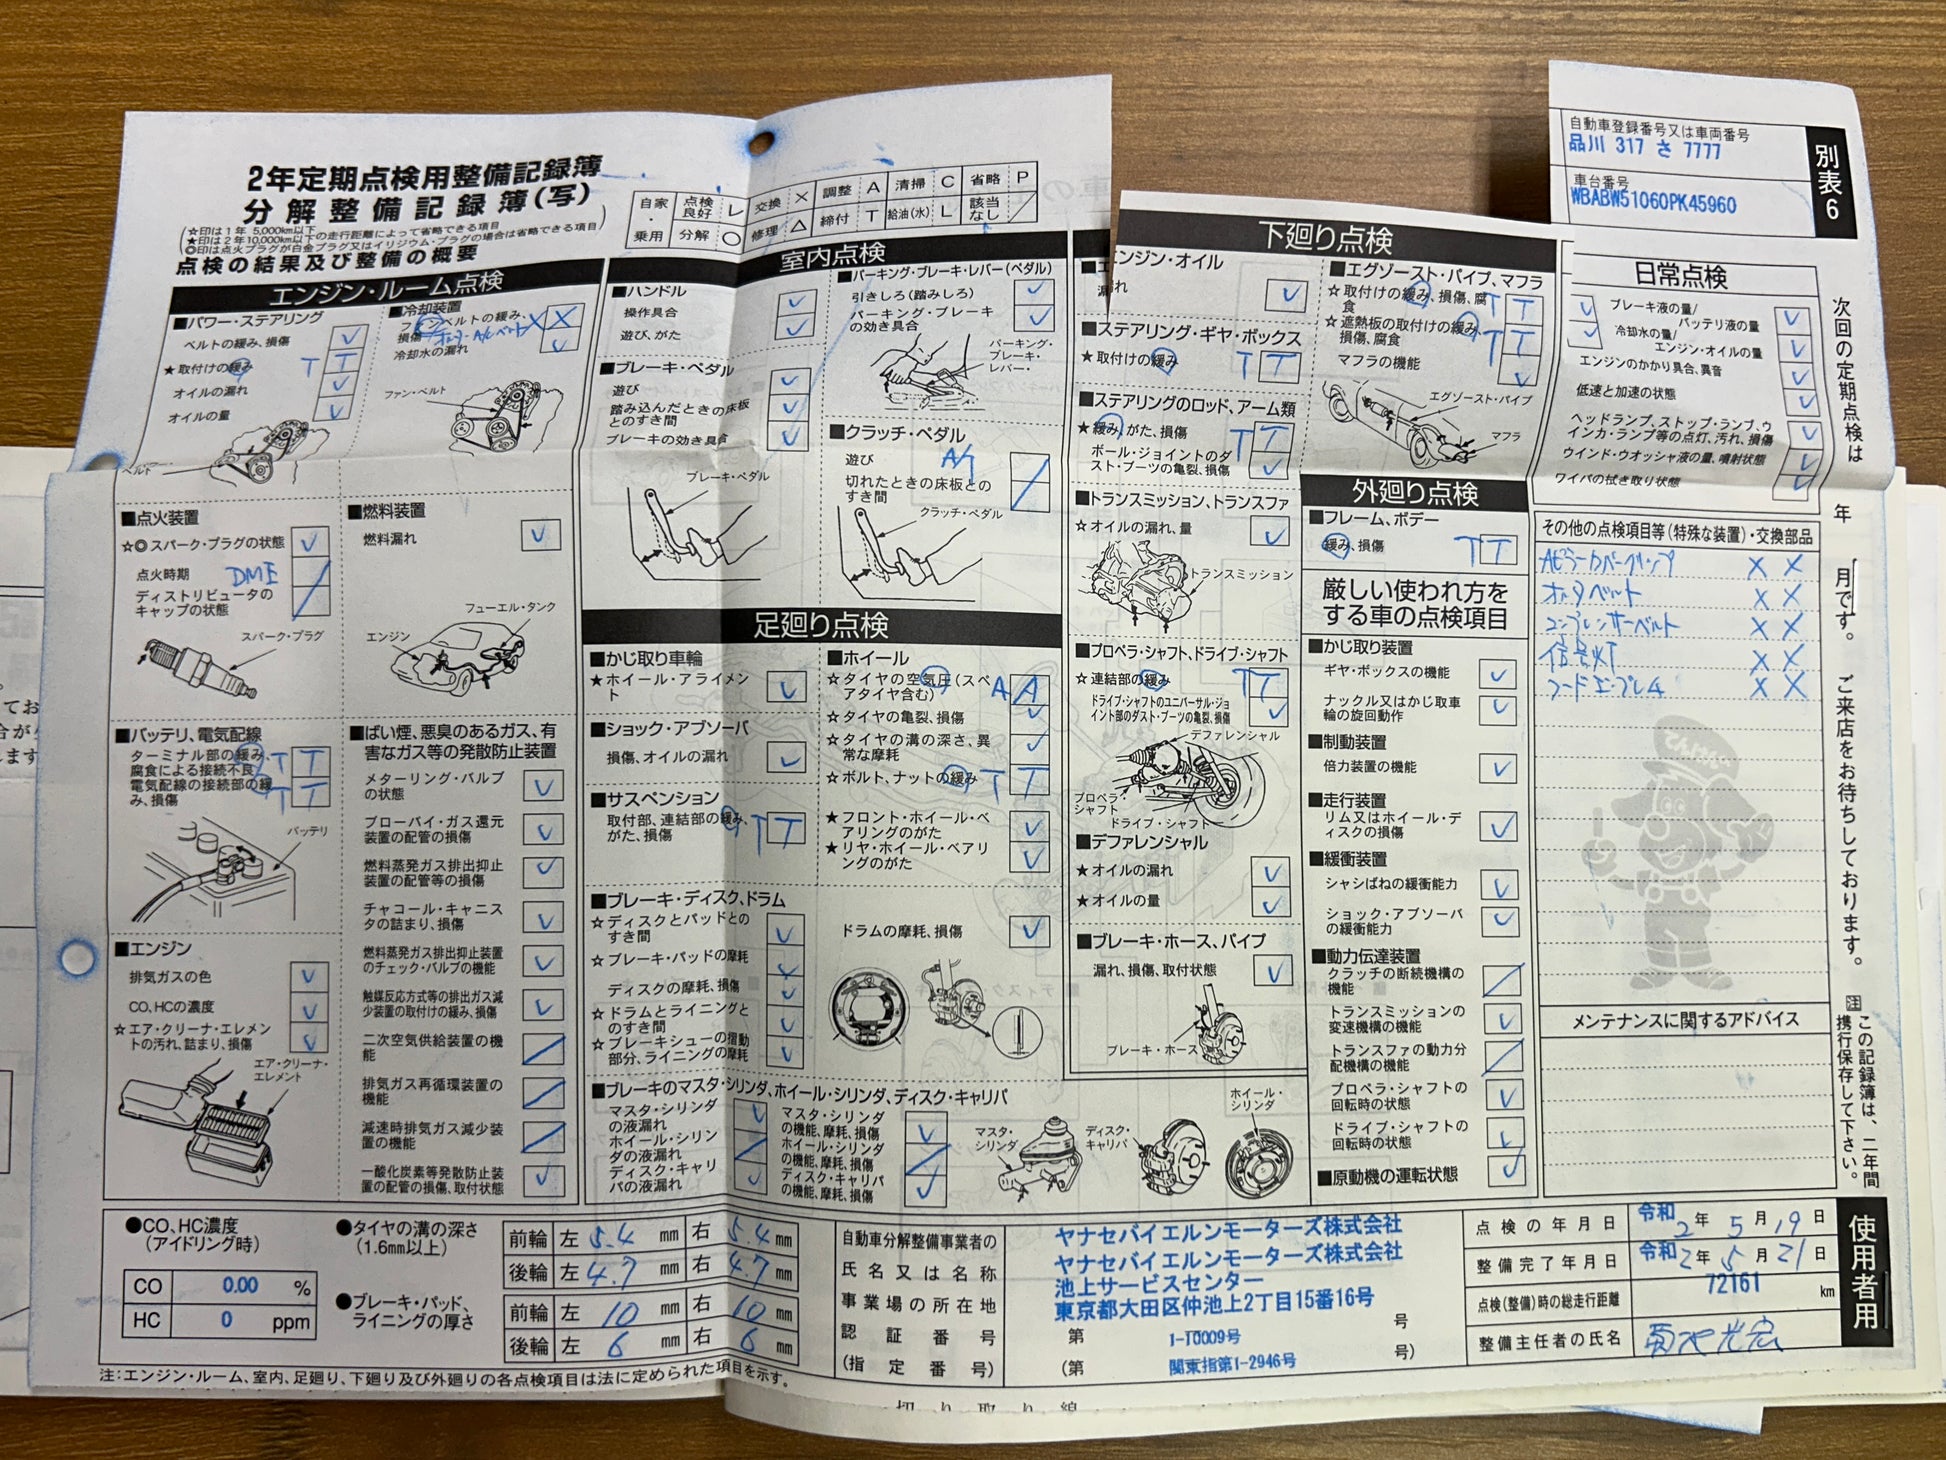 2年定期点検用整備記録簿
分解整備記録簿(写)
☆印は1年 5,000km以下
★印は2年10,000km以下の走行距離によって省略できる項目
◎印は点火プラグが白金プラグ又はイリジウム・プラグの場合は省略できる項目
点検の結果及び整備の概要
自家・乗用
点検良好 レ 交換 × 調整 A 清掃 C 省略 P
分解 ○ 修理 △ 締付 T 給油(水) L 該当なし /
自動車登録番号又は車両番号
品川 317 さ 7777
車台番号
WBABW51060PK45960
別表6
エンジン・ルーム点検
■パワー・ステアリング
ベルトの緩み、損傷
★取付けの緩み T T
オイルの漏れ
オイルの量
ベルト
■冷却装置
ファンベルトの緩み、損傷 X X
冷却水の漏れ
ファン・ベルト
■点火装置
☆◎スパーク・プラグの状態
点火時期 DME
ディストリビュータのキャップの状態
スパーク・プラグ
■燃料装置
燃料漏れ
フューエル・タンク
エンジン
■バッテリ、電気配線
ターミナル部の緩み、腐食による接続不良 T T
電気配線の接続部の緩み、損傷 T T
バッテリ
■ばい煙、悪臭のあるガス、有害なガス等の発散防止装置
メターリング・バルブの状態
ブローバイ・ガス還元装置の配管の損傷
燃料蒸発ガス排出抑止装置の配管等の損傷
チャコール・キャニスタの詰まり、損傷
燃料蒸発ガス排出抑止装置のチェック・バルブの機能
触媒反応方式等の排出ガス減少装置の取付けの緩み、損傷
二次空気供給装置の機能
排気ガス再循環装置の機能
減速時排気ガス減少装置の機能
一酸化炭素等発散防止装置の配管の損傷、取付状態
■エンジン
排気ガスの色
CO、HCの濃度
☆エア・クリーナ・エレメントの汚れ、詰まり、損傷
エア・クリーナ・エレメント
室内点検
■ハンドル
操作具合
遊び、がた
■ブレーキ・ペダル
遊び
踏み込んだときの床板とのすき間
ブレーキの効き具合
ブレーキ・ペダル
■パーキング・ブレーキ・レバー(ペダル)
引きしろ(踏みしろ)
パーキング・ブレーキの効き具合
パーキング・ブレーキ・レバー
■クラッチ・ペダル
遊び A/T
切れたときの床板とのすき間
クラッチ・ペダル
足廻り点検
■かじ取り車輪
★ホイール・アライメント
■ショック・アブソーバ
損傷、オイルの漏れ
■サスペンション
取付部、連結部の緩み、がた、損傷 T T
■ホイール
☆タイヤの空気圧(スペアタイヤ含む) A A
☆タイヤの亀裂、損傷
☆タイヤの溝の深さ、異常な摩耗
☆ボルト、ナットの緩み T T
★フロント・ホイール・ベアリングのがた
★リヤ・ホイール・ベアリングのがた
■ブレーキ・ディスク、ドラム
☆ディスクとパッドとのすき間
☆ブレーキ・パッドの摩耗
ディスクの摩耗、損傷
☆ドラムとライニングとのすき間
☆ブレーキシューの摺動部分、ライニングの摩耗
ドラムの摩耗、損傷
■ブレーキのマスタ・シリンダ、ホイール・シリンダ、ディスク・キャリパ
マスタ・シリンダの液漏れ
ホイール・シリンダの液漏れ
ディスク・キャリパの液漏れ
マスタ・シリンダの機能、摩耗、損傷
ホイール・シリンダの機能、摩耗、損傷
ディスク・キャリパの機能、摩耗、損傷
マスタ・シリンダ
ディスク・キャリパ
ホイール・シリンダ
下廻り点検
エンジン・オイル
漏れ
■ステアリング・ギヤ・ボックス
★取付けの緩み T T
■ステアリングのロッド、アーム類
★緩み、がた、損傷 T T
ボール・ジョイントのダスト・ブーツの亀裂、損傷
■トランスミッション、トランスファ
☆オイルの漏れ、量
トランスミッション
■プロペラ・シャフト、ドライブ・シャフト
☆連結部の緩み T T
ドライブ・シャフトのユニバーサル・ジョイント部のダスト・ブーツの亀裂、損傷
デファレンシャル
プロペラ・シャフト
ドライブ・シャフト
■デファレンシャル
★オイルの漏れ
★オイルの量
■ブレーキ・ホース、パイプ
漏れ、損傷、取付状態
ブレーキ・ホース
■エグゾースト・パイプ、マフラ
☆取付けの緩み、損傷、腐食 T T
☆遮熱板の取付けの緩み、損傷、腐食 T T
マフラの機能
エグゾースト・パイプ
マフラ
外廻り点検
■フレーム、ボデー
緩み、損傷 T T
厳しい使われ方をする車の点検項目
■かじ取り装置
ギヤ・ボックスの機能
ナックル又はかじ取車輪の旋回動作
■制動装置
倍力装置の機能
■走行装置
リム又はホイール・ディスクの損傷
■緩衝装置
シャシばねの緩衝能力
ショック・アブソーバの緩衝能力
■動力伝達装置
クラッチの断続機構の機能
トランスミッションの変速機構の機能
トランスファの動力分配機構の機能
プロペラ・シャフトの回転時の状態
ドライブ・シャフトの回転時の状態
■原動機の運転状態
日常点検
ブレーキ液の量/バッテリ液の量
冷却水の量/エンジン・オイルの量
エンジンのかかり具合、異音
低速と加速の状態
ヘッドランプ、ストップ・ランプ、ウインカ・ランプ等の点灯、汚れ、損傷
ウインド・ウオッシャ液の量、噴射状態
ワイパの拭き取り状態
その他の点検項目等(特殊な装置)・交換部品
Aピラーカバークリップ X X
オルタベルト X X
コンプレッサーベルト X X
信号灯 X X
フードエンブレム X X
メンテナンスに関するアドバイス
次回の定期点検は 年 月です。ご来店をお待ちしております。
注 この記録簿は、二年間携行保存して下さい。
●CO、HC濃度(アイドリング時)
CO 0.00 %
HC 0 ppm
●タイヤの溝の深さ(1.6mm以上)
前輪 左 5.4 mm 右 5.4 mm
後輪 左 4.7 mm 右 4.7 mm
●ブレーキ・パッド、ライニングの厚さ
前輪 左 10 mm 右 10 mm
後輪 左 6 mm 右 6 mm
自動車分解整備事業者の氏名又は名称
事業場の所在地
認証番号
(指定番号)
ヤナセバイエルンモーターズ株式会社
ヤナセバイエルンモーターズ株式会社
池上サービスセンター
東京都大田区仲池上2丁目15番16号
第 1-10009号 号
(第 関東指第1-2946号 号)
点検の年月日 令和2年5月19日
整備完了年月日 令和2年5月21日
点検(整備)時の総走行距離 72161 km
整備主任者の氏名
使用者用
注:エンジン・ルーム、室内、足廻り、下廻り及び外廻りの各点検項目は法に定められた項目を示す。
切り取り線